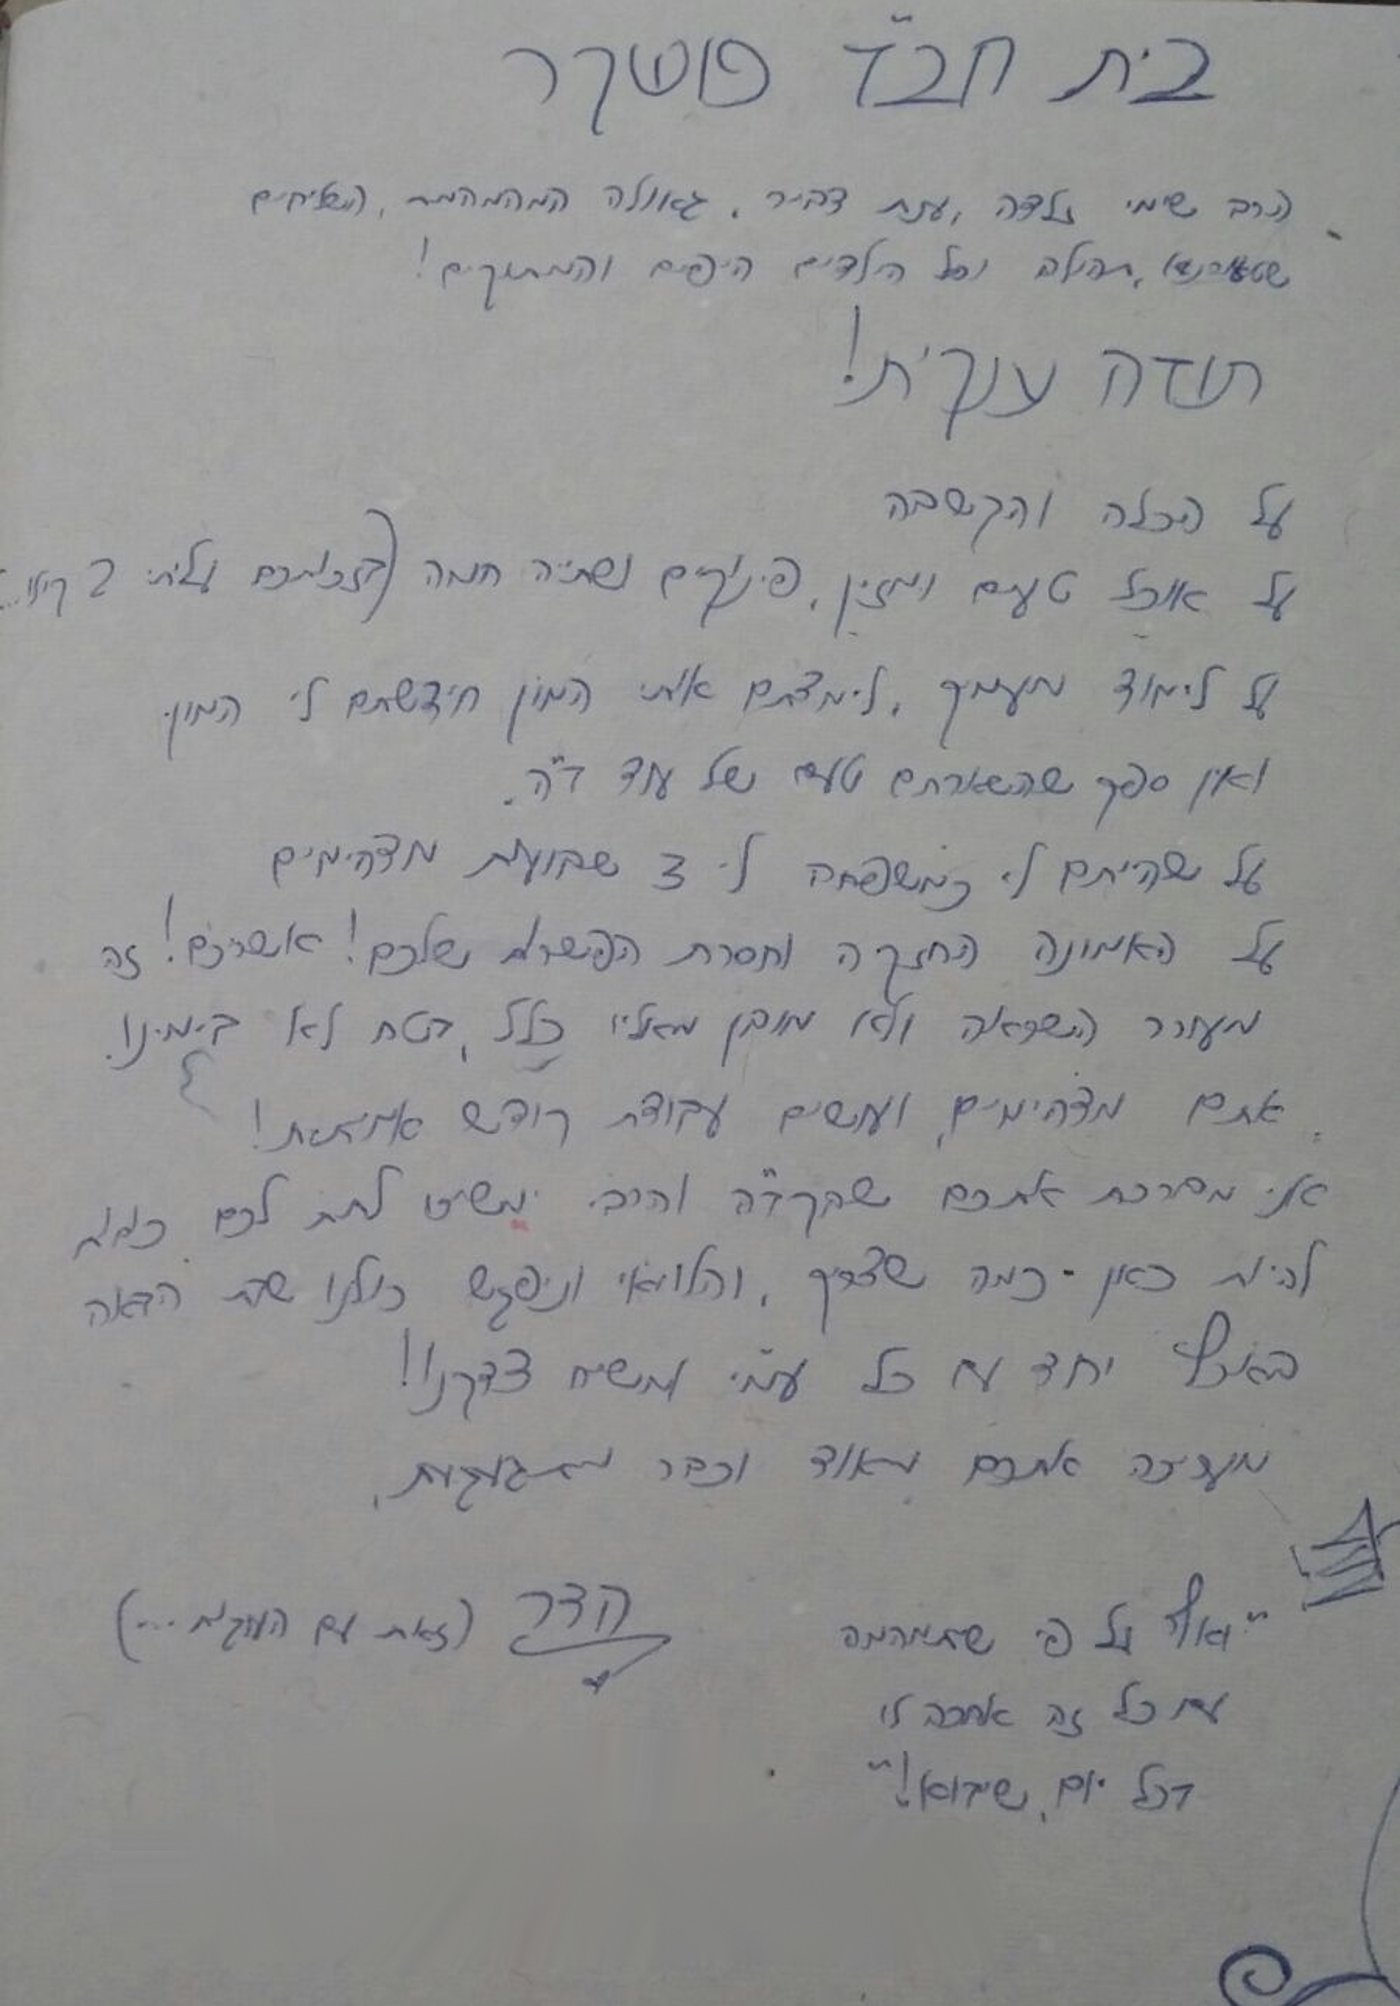 בית חב"ד פושקר
הרב שימי זלדה, ענת דביר, גאולה המהממת, האחים
וכל הילדים היפים והמתוקים!
תודה ענקית!
על הכלה והקשבה
על אוכל טעים ומזין, פינוקים ושתיה חמה (בזכותכם עליתי 2 קילו...
על לימוד מעמיק, לימדתם אותי המון חידשתם לי המון
ואין ספק שהשארתם טעם של עוד ב"ה.
על שהייתם לי כמשפחה ל-3 שבועות מדהימים
על האמונה החזקה וחסרת הפשרות שלכם! אשריכם! זה
מעורר השראה ולא מובן מאליו כלל, בטח לא בימינו.
אתם מדהימים, ועושים עבודת קודש אמיתית!
אני מברכת אתכם שהקב"ה והרבי ימשיכו לתת לכם כוחות
להיות כאן - כמה שצריך, והלוואי וניפגש כולנו שנה הבאה
יחד עם כל עמ"י ומשיח צדקנו!!
מעריכה אתכם מאוד וכבר מתגעגעת,
הדר (זאת עם העוגות...)
"ואף על פי שיתמהמה
עם כל זה אחכה לו
בכל יום, שיבוא!"